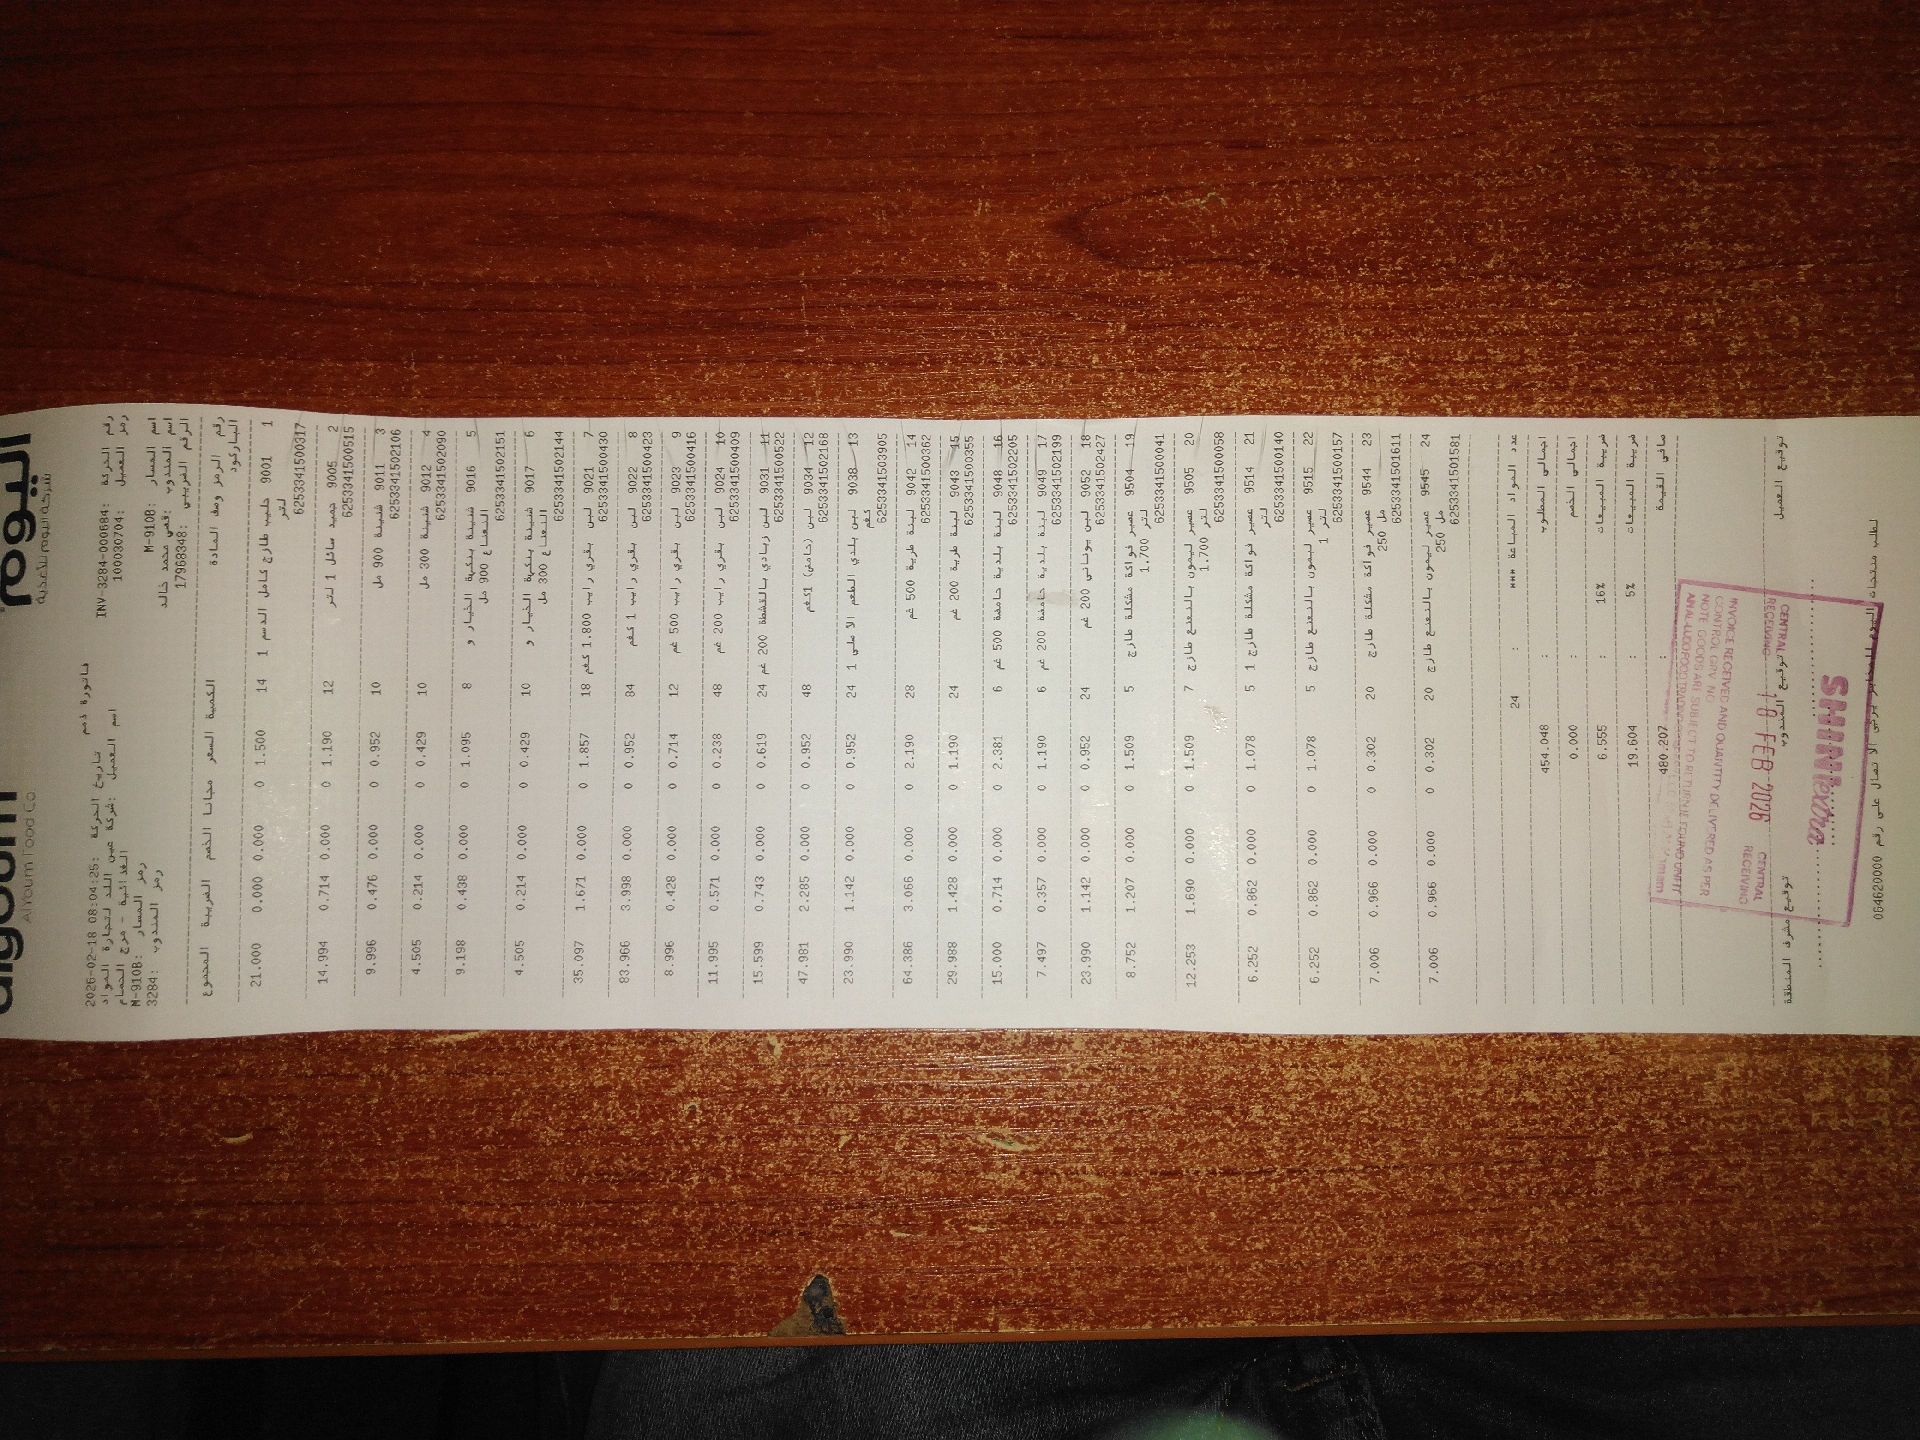 اليوم
شركة اليوم للأغذية
AlYoum Food Co
فاتورة ذمم
رقم الحركة: INV-3284-000684 تاريخ الحركة: 2026-02-18 08:04:25
رمز العميل: 100030704 اسم العميل: شركة عين اللد لتجارة المواد الغذائية - مرج الحمام
اسم المسار: M-910B رمز المسار: M-910B
اسم المندوب: قصي محمد خالد رمز المندوب: 3284
الرقم الضريبي: 17968348
رقم الرمز وصف المادة الكمية السعر مجانا الخصم الضريبة المجموع
الباركود
1 9001 حليب طازج كامل الدسم 1 لتر 14 1.500 0 0.000 0.000 21.000
6253341500317
2 9005 جميد سائل 1 لتر 12 1.190 0 0.000 0.714 14.994
6253341500515
3 9011 شنينة 900 مل 10 0.952 0 0.000 0.476 9.996
6253341502106
4 9012 شنينة 300 مل 10 0.429 0 0.000 0.214 4.505
6253341502090
5 9016 شنينة بنكهة الخيار و النعناع 900 مل 8 1.095 0 0.000 0.438 9.198
6253341502151
6 9017 شنينة بنكهة الخيار و النعناع 300 مل 10 0.429 0 0.000 0.214 4.505
6253341502144
7 9021 لبن بقري رايب 1.800 كغم 18 1.857 0 0.000 1.671 35.097
6253341500430
8 9022 لبن بقري رايب 1 كغم 84 0.952 0 0.000 3.998 83.966
6253341500423
9 9023 لبن بقري رايب 500 غم 12 0.714 0 0.000 0.428 8.996
6253341500416
10 9024 لبن بقري رايب 200 غم 48 0.238 0 0.000 0.571 11.995
6253341500409
11 9031 لبن زبادي بالقشطة 200 غم 24 0.619 0 0.000 0.743 15.599
6253341500522
12 9034 لبن (حامض) 1كغم 48 0.952 0 0.000 2.285 47.981
6253341502168
13 9038 لبن بلدي الطعم الاصلي 1 كغم 24 0.952 0 0.000 1.142 23.990
6253341503905
14 9042 لبنة طرية 500 غم 28 2.190 0 0.000 3.066 64.386
6253341500362
15 9043 لبنة طرية 200 غم 24 1.190 0 0.000 1.428 29.988
6253341500355
16 9048 لبنة بلدية حامضة 500 غم 6 2.381 0 0.000 0.714 15.000
6253341502205
17 9049 لبنة بلدية حامضة 200 غم 6 1.190 0 0.000 0.357 7.497
6253341502199
18 9052 لبن يوناني 200 غم 24 0.952 0 0.000 1.142 23.990
6253341502427
19 9504 عصير فواكة مشكلة طازج 1.700 لتر 5 1.509 0 0.000 1.207 8.752
6253341500041
20 9505 عصير ليمون بالنعنع طازج 1.700 لتر 7 1.509 0 0.000 1.690 12.253
6253341500058
21 9514 عصير فواكة مشكلة طازج 1 لتر 5 1.078 0 0.000 0.862 6.252
6253341500140
22 9515 عصير ليمون بالنعنع طازج 1 لتر 5 1.078 0 0.000 0.862 6.252
6253341500157
23 9544 عصير فواكة مشكلة طازج 250 مل 20 0.302 0 0.000 0.966 7.006
6253341501611
24 9545 عصير ليمون بالنعنع طازج 250 مل 20 0.302 0 0.000 0.966 7.006
6253341501581
عدد المواد المباعة *** : 24
اجمالي المطلوب : 454.048
اجمالي الخصم : 0.000
ضريبة المبيعات 16% : 6.555
ضريبة المبيعات 5% : 19.604
صافي القيمة : 480.207
توقيع العميل توقيع المندوب توقيع مشرف المنطقة
CENTRAL RECEIVING
INVOICE RECEIVED AND QUANTITY DELIVERED AS PER
CONTROL GRV NO
NOTE GOODS ARE SUBJECT TO RETURN
18 FEB 2026
CENTRAL RECEIVING
SHINI extra
لطلب منتجات اليوم الاتصال على رقم 064620000